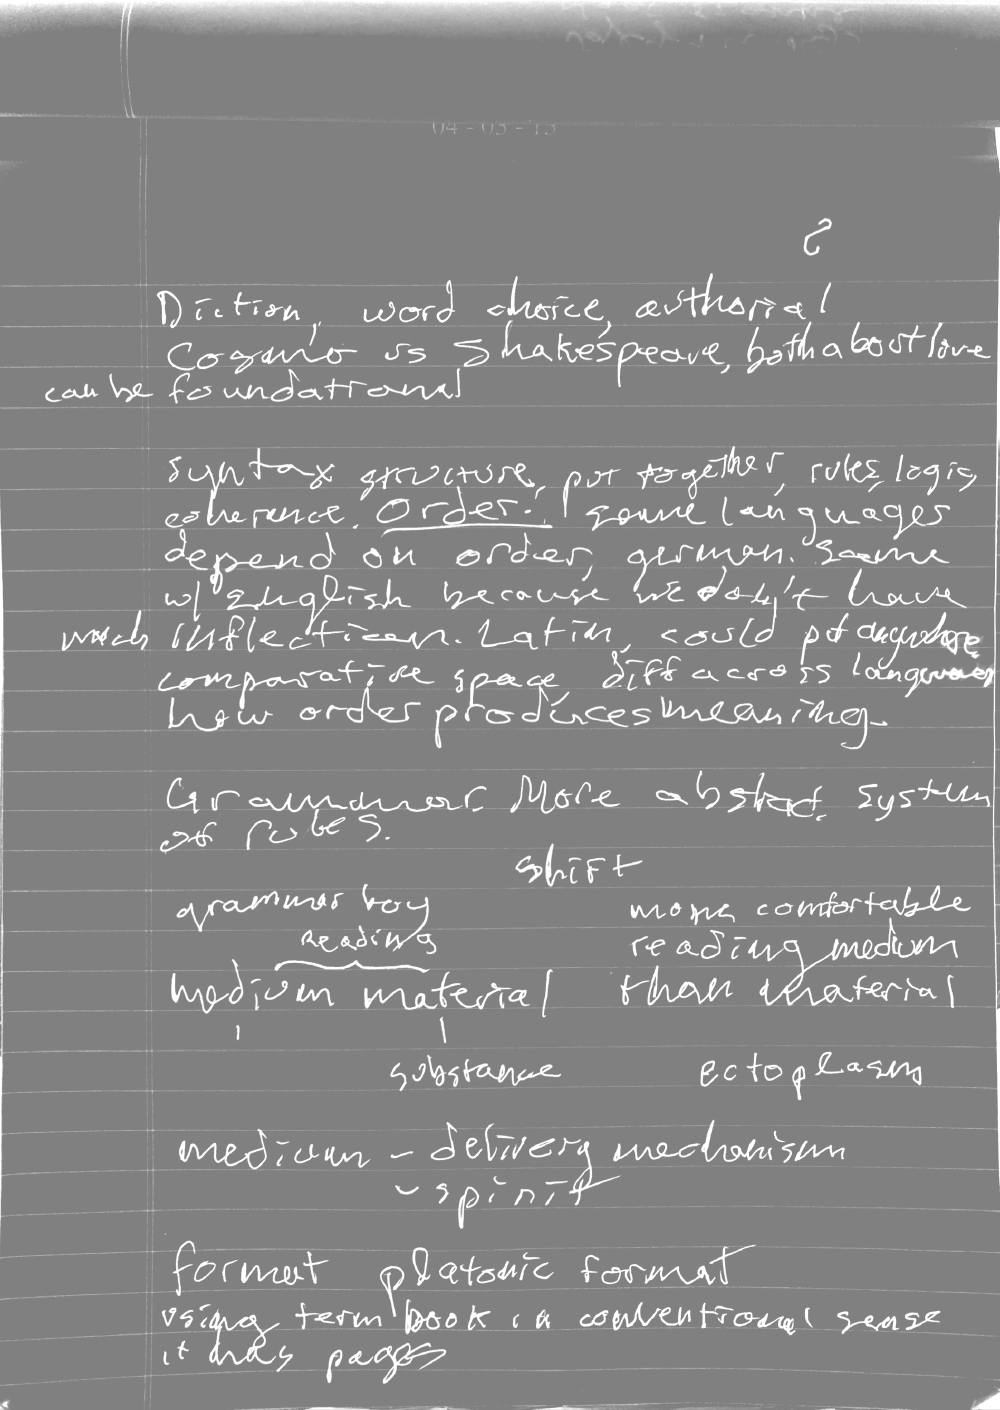 04-03-13
?
Diction, word choice, authorial
Cosmo vs Shakespeare, both about love
can be foundational
syntax structure, put together, rules, logic,
coherence. Order! some languages
depend on order, german. Same
w/ English because we don't have
much inflection. Latin, could put anywhere
comparative space diff across languages
how order produces meaning.
Grammar. More abstract. System
of rules.
shift
grammar boy
more comfortable
reading
reading medium
medium material
than material
substance
ectoplasm
medium - delivery mechanism
- spirit
format platonic format
using term book in a conventional sense
it has pages